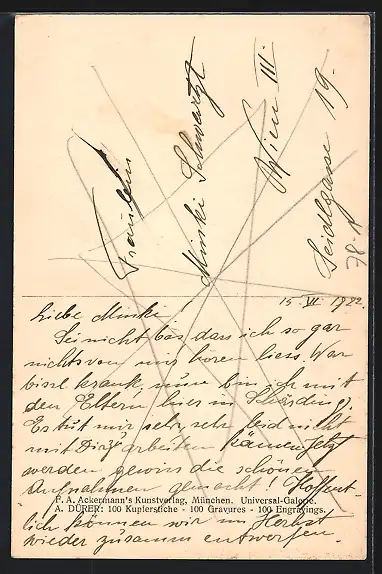 Fräulein
Minki Schwartz
Wien III.
Seidlgasse 19.
78-1
15. VI. 1922.
Liebe Minki!
Sei nicht bös, dass ich so gar
nichts von mir hören liess. War
bissl krank, nun bin ich mit
den Eltern hier in Schärding.
Es tut mir sehr, sehr leid nicht
mit Dir arbeiten können. Jetzt
werden gewiss die schönen
Aufnahmen gemacht! Hoffent-
lich können wir im Herbst
wieder zusamm entwerfen.
F. A. Ackermann's Kunstverlag, München. Universal-Galerie.
A. DÜRER: 100 Kupferstiche - 100 Gravures - 100 Engravings.